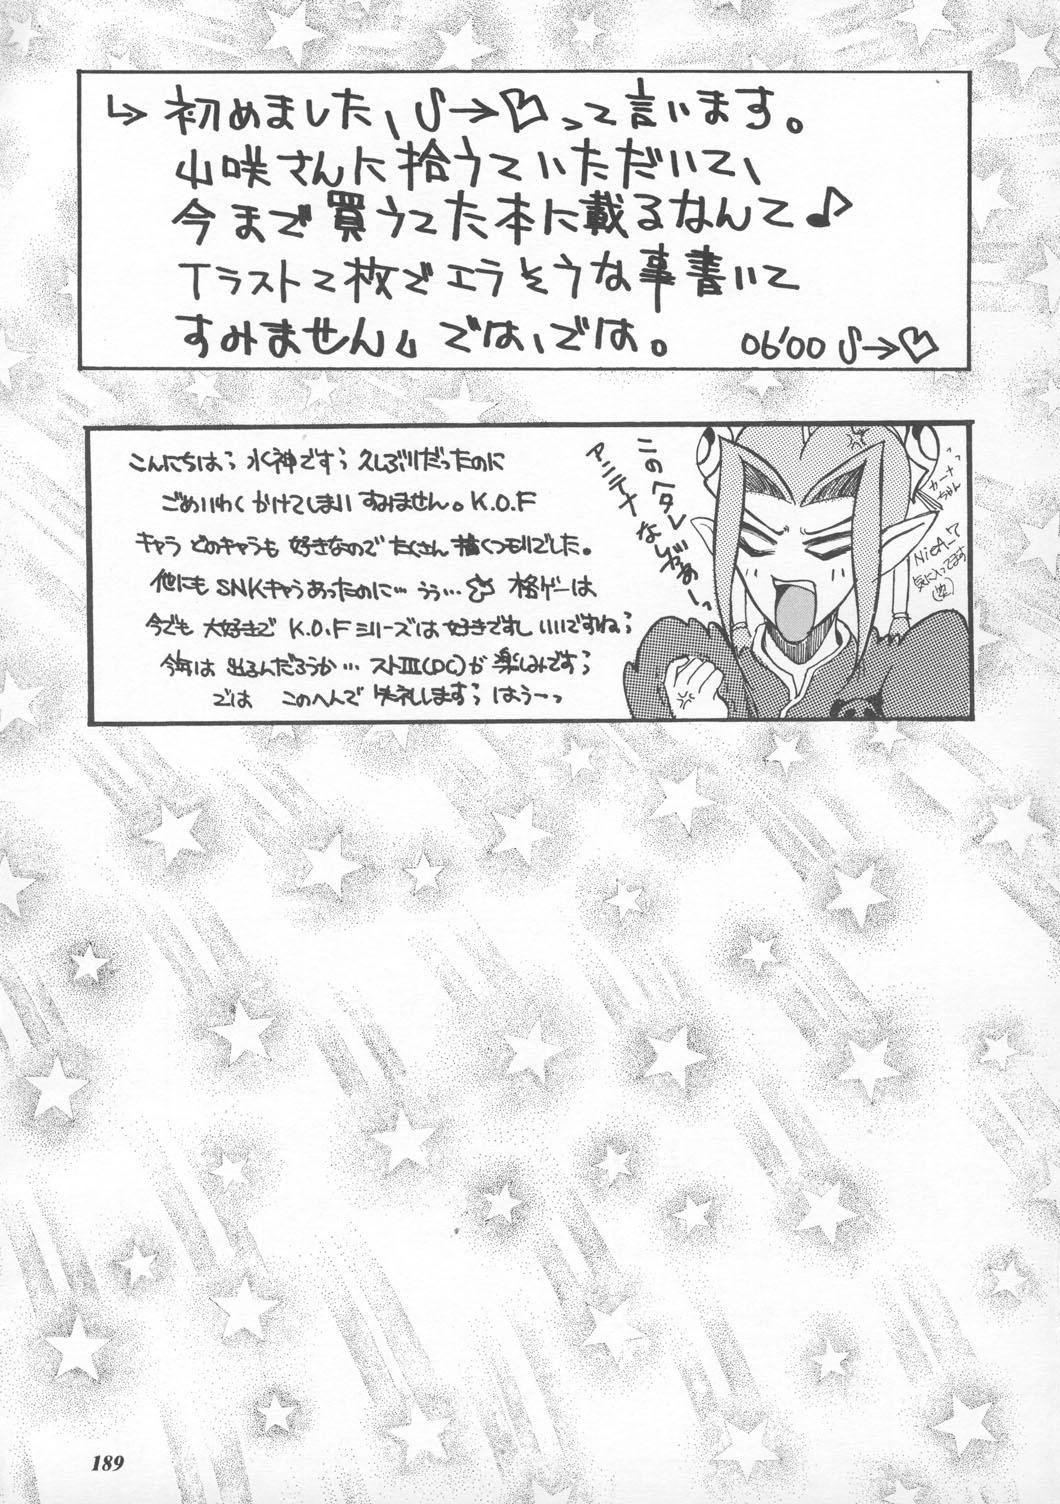 ↳ 初めました、♪→♡って言います。
山咲さんに拾うていただいて、
今まで買うてた本に載るなんて♪
イラスト2枚でエラそうな事書いて
すみません。では、では。 06'00 ♪→♡
こんにちはぅ 水神ですぅ 久しぶりだったのに
ごめいわく かけてしまい すみません。K.O.F
キャラ どのキャラも 好きなので たくさん 描くつもりでした。
他にも SNKキャラあったのに… うぅ… 格ゲーは
今でも 大好きで K.O.F シリーズは 好きですし いいですねぅ
今年は 出るんだろうか… ストⅢ(DC)が 楽しみですぅ
では このへんで 失礼しますぅ はうーっ
このヘタレ
アンテナ
なしだぁーっ
カーナ
ちゃん
気に入ってます
(笑)
189